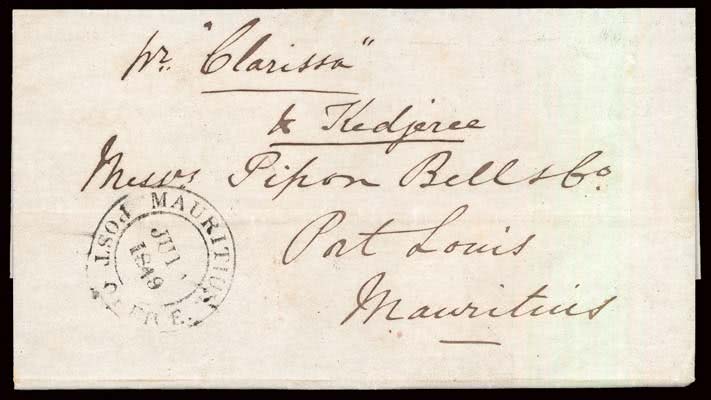 pr. "Clarissa"
& Kedjeree
Messrs. Pipon Bell & Co.
Port Louis
Mauritius
MAURITIUS POST OFFICE
JU
1849